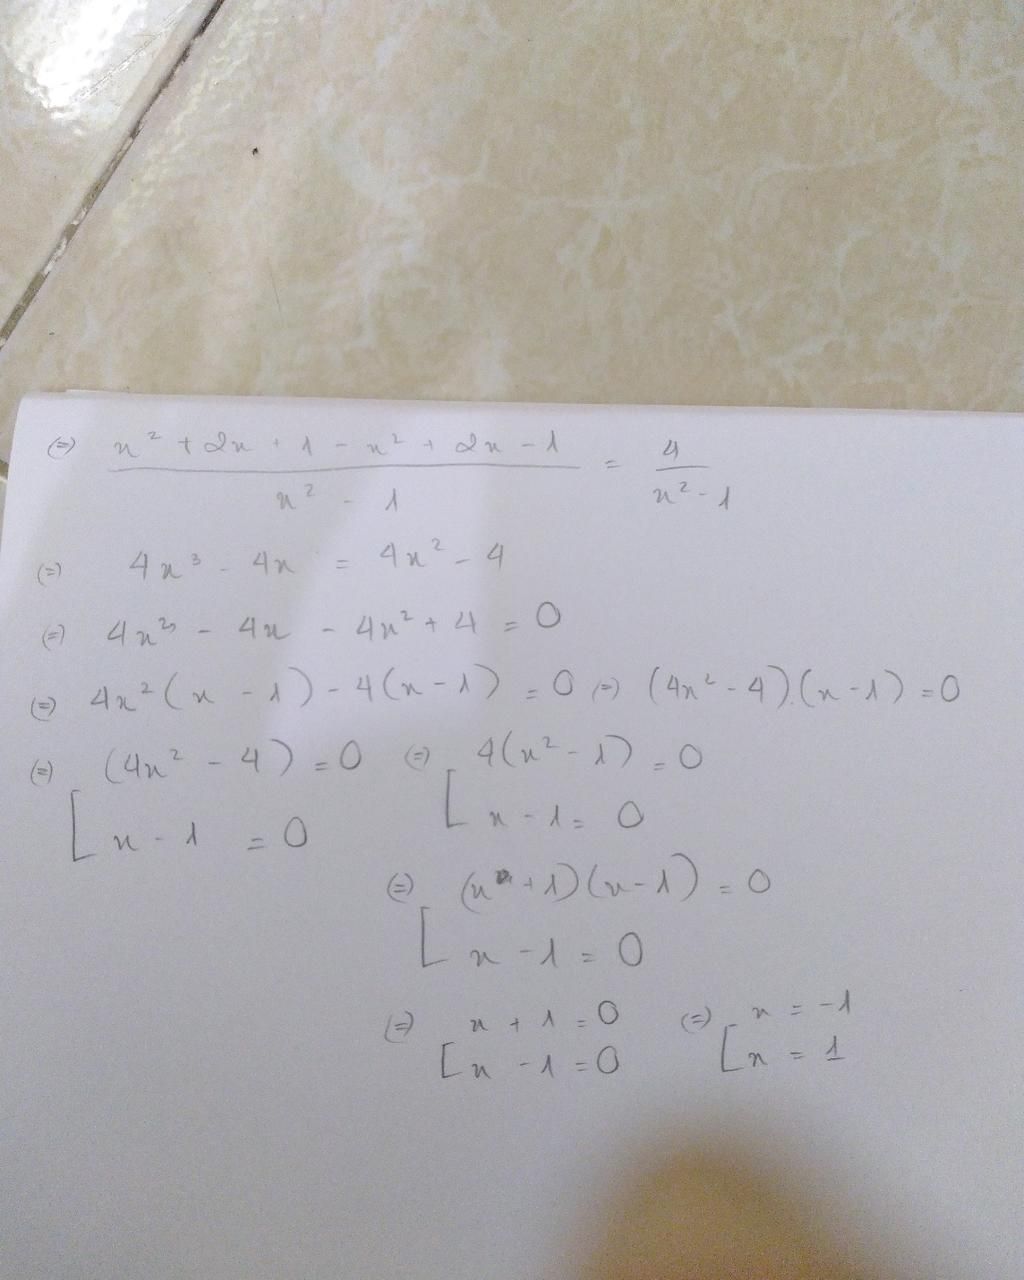 (=) x² + 2x + 1 - x² + 2x - 1 / x² - 1 = 4 / x² - 1
(=) 4x³ - 4x = 4x² - 4
(=) 4x³ - 4x - 4x² + 4 = 0
(=) 4x²(x - 1) - 4(x - 1) = 0 (=) (4x² - 4).(x - 1) = 0
(=) [ (4x² - 4) = 0 (=) [ 4(x² - 1) = 0
x - 1 = 0 x - 1 = 0
(=) [ (x + 1)(x - 1) = 0
x - 1 = 0
(=) [ x + 1 = 0 (=) [ x = -1
x - 1 = 0 x = 1